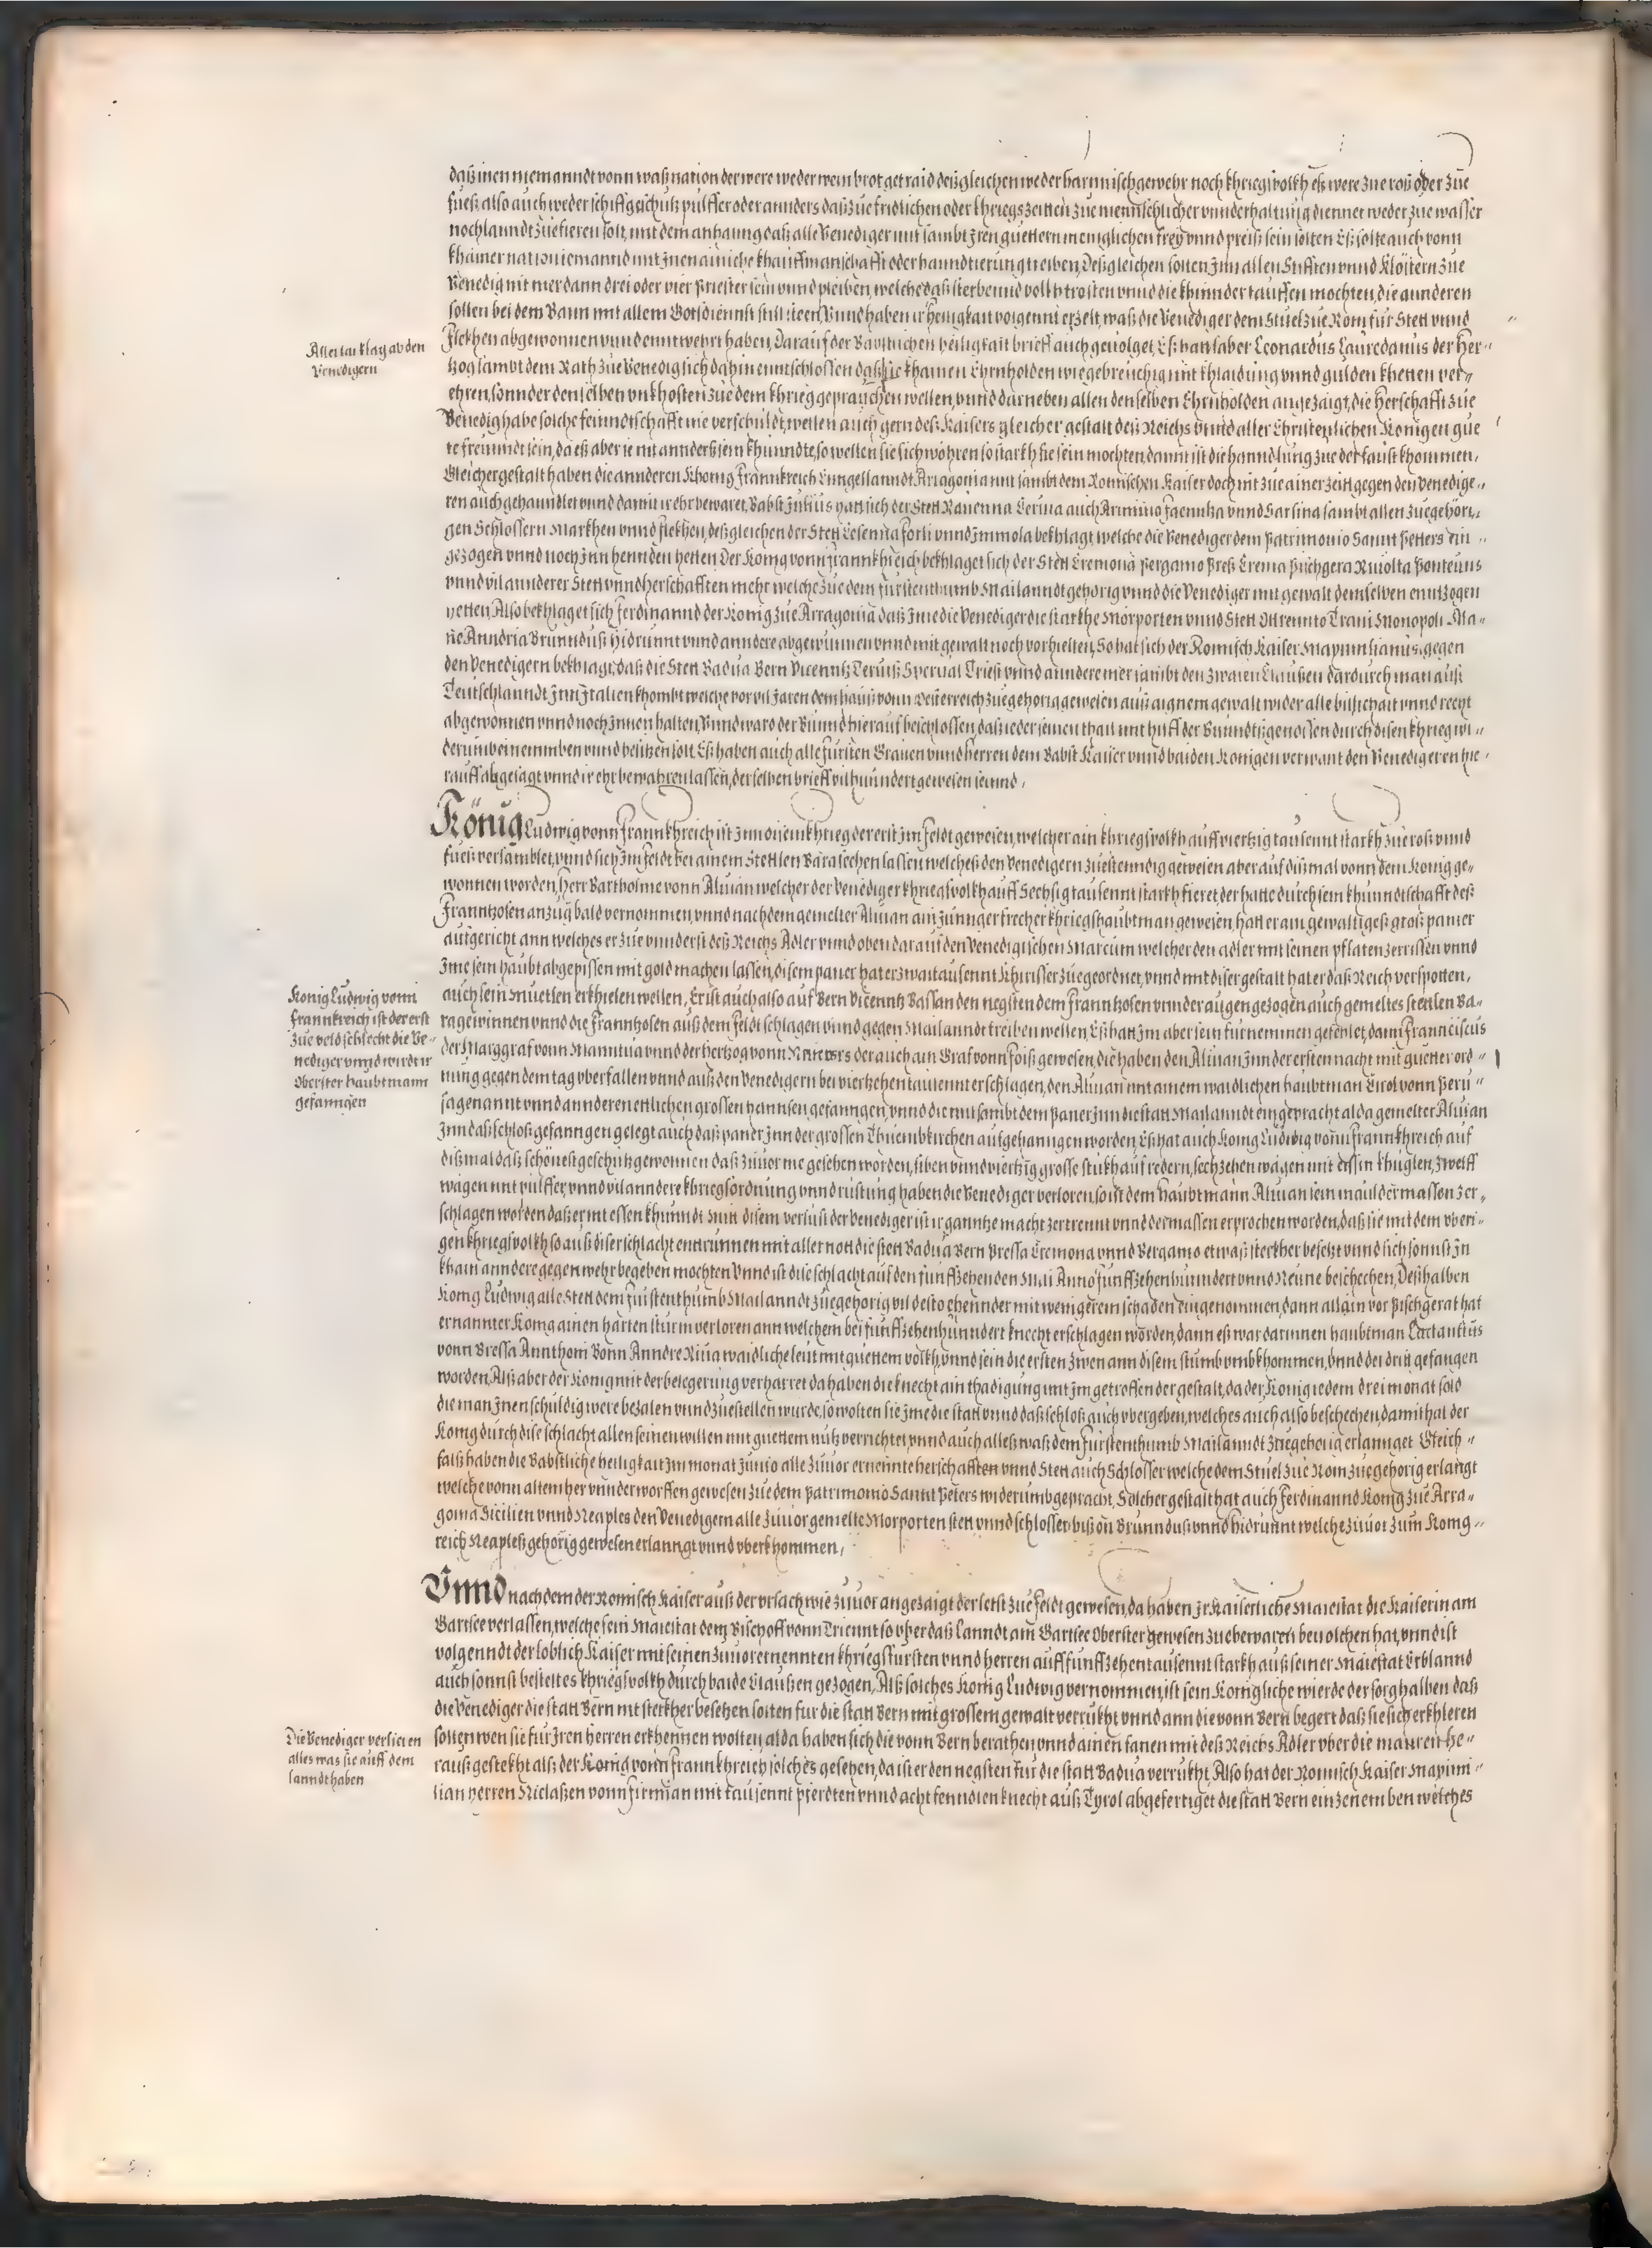 daß inen niemanndt vonn waß nation der were weder wein brot getraid deßgleichen weder harnnisch gewehr noch khriegsvolkh eß were zue roß oder zue
fueß also auch weder schiff geschutz pulffer oder annders daß zue fridlichen oder khriegszeitten zue mennschlicher vnnderhaltung diennet weder zue wasser
noch lanndt zuefieren solt, mit dem anhanng daß alle Venediger mit sambt jren guettern meniglichen frey vnnd preiß sein solten Eß solte auch vonn
khainer nation iemannd mit jnen ainiche khauffmanschafft oder hanndtierung treiben, Deßgleichen solten jnn allen Stifften vnnd Klöstern zue
Venedig nit mer dann drei oder vier Priester sein vnnd pleiben, welche daß sterbennd volkh trosten vnnd die khinnder tauffen mochten, die annderen
sollen bei dem Bann mit allem Gotsdiennst still steen, Vnnd haben ir heiligkait volgennt erzelt, waß die Venediger dem Stuel zue Rom für Stett vnnd
Flekhen abgewonnen vnnd enntwehrt haben, Darauf der Bapstlichen heiligkait brieff auch geuolget, Eß hatt aber Leonardus Lauredanus der Her-
tzog sambt dem Rath zue Venedig sich dahin enntschlossen daß sie khainen Ehrnholden wie gebreuchig mit khlaidung vnnd gulden khetten ver-
ehren, sonnder denselben vnkhosten zue dem khrieg geprauchen wellen, vnnd darneben allen denselben Ehrnholden angezaigt, die Herschafft zue
Venedig habe solche feinndtschafft nie verschuldt, wellen auch gern deß Kaisers gleicher gestalt deß Reichs vnnd aller Christenlichen Konigen gue
te freunndt sein, da eß aber ie nit annderß sein khunndte, so wellen sie sich wöhren so starkh sie sein mochten, damit ist die hanndlung zue der faust khommen,
Gleicher gestalt haben die annderen Khonig Frannkreich Enngellanndt Arragonia mit sambt dem Romischen Kaiser doch nit zue ainer zeitt gegen den Venedige-
ren auch gehanndlet vnnd damit ir ehr bewaret, Babst Julius hatt sich der Stett Rauenna Ceruia auch Arimino Faenntza vnnd Sarsina sambt allen zuegehöri-
gen Schlossern Markhen vnnd flekhen, deßgleichen der Stett Cesenna Forli vnnd Jmmola bekhlagt, welche die Venediger dem Patrimonio Sannt Petters ein
gezogen vnnd noch jnn hennden hetten Der Konig vonn Frannkhreich bekhlaget sich der Stett Cremona Pergamo Preß Crema Pischgera Riuolta Ponteuns
vnnd vil annderer Stett vnnd herschafften mehr welche zue dem fürstenthumb Mailanndt gehörig vnnd die Venediger mit gewalt demselben enntzogen
hetten, Also bekhlaget sich Ferdinannd der Konig zue Arragonia daß jme die Venediger die starkhe Mörporten vnnd Stett Ottrennto Trani Monopoli Ma-
ne Anndria Brunnduß Hidrunnt vnnd anndere abgewunnen vnnd mit gewalt noch vorhielten, So hat sich der Romisch Kaiser Maximilianus, gegen
den Venedigern bekhlagt, daß die Stett Badua Bern Vicenntz Teruiß Sperual Triest vnnd anndere mer sambt den zwaien Claußen dardurch man auß
Teutschlanndt jnn Jtalien khombt welche vor vil jaren dem hauß vonn Össterreich zuegehörig gewesen auß aignem gewalt wider alle billichait vnnd recht
abgewonnen vnnd noch jnnen halten, Vnnd ward der Bunnd hierauf beschlossen, daß ieder seinen thail mit hilff der Bunndtßgenossen durch disen khrieg wi-
derumb einemmben vnnd besitzen solt, Eß haben auch alle fürsten Grauen vnnd herren dem Babst Kaiser vnnd baiden Konigen verwant den Venedigeren hie-
rauff abgesagt vnnd ir ehr bewahren lassen, der selben brieff vil hunndert gewesen seinnd,
König Ludwig vonn Frannkhreich ist jnn disem khrieg der erst jm feldt gewesen, welcher ain khriegsvolkh auff viertzig tausennt starkh zue roß vnnd
fueß versamblet, vnnd sich jm feldt bei ainem Stettlen Vara sechen lassen welcheß den Venedigern zuestenndig gewesen aber auf dißmal vonn dem Konig ge-
wonnen worden, herr Bartholme vonn Aluian welcher der Venediger khriegsvolkh auff Sechßig tausennt starkh fieret, der hatte durch sein khunndtschafft deß
Franntzosen anzug bald vernommen, vnnd nach dem gemelter Aluian ain junnger frecher khriegshaubtman gewesen, hatt er ain gewaltigeß groß panier
aufgericht ann welches er zue vnnderst deß Reichs Adler vnnd oben darauf den Venedigischen Marcum welcher den adler mit seinen pfiaten zerrissen vnnd
jme sein haubt abgepissen mit gold machen lassen, disem panier hat er zwaitausennt Khurisser zuegeordnet, vnnd mit diser gestalt hat er daß Reich verspotten,
auch sein muetlen erkhielen wellen, Er ist auch also auf Bern Vicenntz Bassan den negsten dem Franntzosen vnnder augen gezogen auch gemeltes stettlen Va-
ra gewinnen vnnd die Franntzosen auß dem feldt schlagen vnnd gegen Mailanndt treiben wellen, Eß hatt jm aber sein fürnemmen gefehlet, dann Franciscus
der Marggraf vonn Manntua vnnd der hertzog vonn Niuers der auch ain Graf vonn Foiß gewesen, die haben den Aluian jnn der ersten nacht mit guetter ord-
nung gegen dem tag vberfallen vnnd auß den Venedigern bei viertzehen tausennt erschlagen, den Aluian mit ainem waidlichen haubtman Cirol vonn Peru-
sa genannt vnnd annderen ettlichen grossen hannsen gefanngen, vnnd die mit sambt dem Paner jnn die statt Mailanndt eingepracht alda gemelter Aluian
jnn daß schloß gefanngen gelegt auch daß paner jnn der grossen Thuembkirchen aufgehanngen worden, Eß hat auch Konig Ludwig vonn Frannkhreich auf
dißmal daß schönest geschutz gewonnen daß zuuor nie gesehen worden, siben vnnd viertzig grosse stükh auf redern, sechzehen wägen mit eissin khuglen, zwelff
wägen mit pulffer, vnnd vil anndere khriegsordnung vnnd rüstung haben die Venediger verloren so ist dem haubtmann Aluian sein maul dermassen zer-
schlagen worden daß er nit essen khunndt Mitt disem verlust der Venediger ist ir ganntze macht zertrennt vnnd dermassen erprochen worden, daß sie mit dem vberi-
gen khriegsvolkh so auß diser schlacht enttrunnen mit aller nott die stett Badua Bern Pressa Cremona vnnd Bergamo etwaß sterkher besetzt vnnd sich sonnst jn
khain anndere gegenwehr begeben mochten Vnnd ist dise schlacht auf den funffzehenden Mai Anno funffzehenhunndert vnnd Neune beschechen, Deßhalben
Konig Ludwig alle Stett dem Fürstenthumb Mailanndt zuegehorig vil desto ehennder mit wenigerem schaden eingenommen, dann allain vor Pischgera hat
ernannter Konig ainen harten sturm verloren ann welchem bei funffzehenhunndert knecht erschlagen worden, dann eß war darinnen haubtman Lactantius
vonn Bressa Annthoni Vonn Anndre Riua waidliche leüt mit guettem volkh, vnnd sein die ersten zwen ann disem sturmb vmbkhommen, vnnd der drit gefangen
worden, Alß aber der Konig mit der belegerung verharret da haben die knecht ain thädigung mit jm getroffen der gestalt, da der Konig iedem drei monat sold
die man jnen schuldig were bezalen vnnd zuestellen wurde, so wolten sie jme die statt vnnd daß schloß auch vbergeben, welches auch also beschechen, damit hat der
Konig durch dise schlacht allen seinen willen mit guettem nutz verrichtet, vnnd auch alleß waß dem Fürstenthumb Mailanndt zuegeherig erlannget Gleich-
falß haben die Babstliche heiligkait jm monat Junio alle zuuor ernennte herschafften vnnd Stett auch Schlosser welche dem Stuel zue Rom zuegehörig erlangt
welche vonn altem her vnnderworffen gewesen zue dem Patrimonio Sannt Peters widerumb gepracht, Solcher gestalt hat auch Ferdinannd Konig zue Arra-
gonia Sicilien vnnd Neaples den Venedigern alle zuuor gemelte Morporten stett vnnd schlosser biß on Brunnduß vnnd Hidrunnt welche zuuor zum Konig-
reich Neapleß gehörig gewesen erlanngt vnnd vberkhommen,
Vnnd nach dem der Romisch Kaiser auß der vrsach wie zuuor angezaigt der letst zue feldt gewesen, da haben jr Kaiserliche Maiestat die Kaiserin am
Gartsee verlassen, welche sein Maiestat dem Bischoff vonn Triennt so vber daß Lanndt am Gartsee Oberster gewesen zuebewaren beuolchen hat, vnnd ist
volgenndt der loblich Kaiser mit seinen zuuor ernennten khriegsfürsten vnnd herren auff funffzehen tausennt starkh auß seiner Maiestat Erblannd
auch sonnst besteltes khriegsvolkh durch baide Claußen gezogen, Alß solches Konig Ludwig vernommen, ist sein Konigliche wierde der sorg halben daß
die Venediger die statt Bern mit sterkher besetzen solten für die statt Bern mit grossem gewalt verrukht vnnd ann die vonn Bern begert daß sie sich erkhleren
solten wen sie für jren herren erkhennen wolten, alda haben sich die vonn Bern berathen vnnd ainen fanen mit deß Reichs Adler vber die mauren he-
rauß gestekht alß der Konig vonn Frannkhreich solches gesehen, da ist er den negsten für die statt Badua verrukht, Also hat der Romisch Kaiser Maximi-
lian herren Niclaßen vonn Firmian mit tausennt pferdten vnnd acht fenndlen knecht auß Tyrol abgefertiget die statt Bern einzenemben welches
Allerlai klag ab den
Venedigern
Konig Ludwig vonn
Frannkreich ist der erst
zue veld schlecht die Ve-
nediger vnnd wirdt ir
Oberster haubtmann
gefanngen
Die Venediger verlieren
alles was sie auff dem
lanndt haben